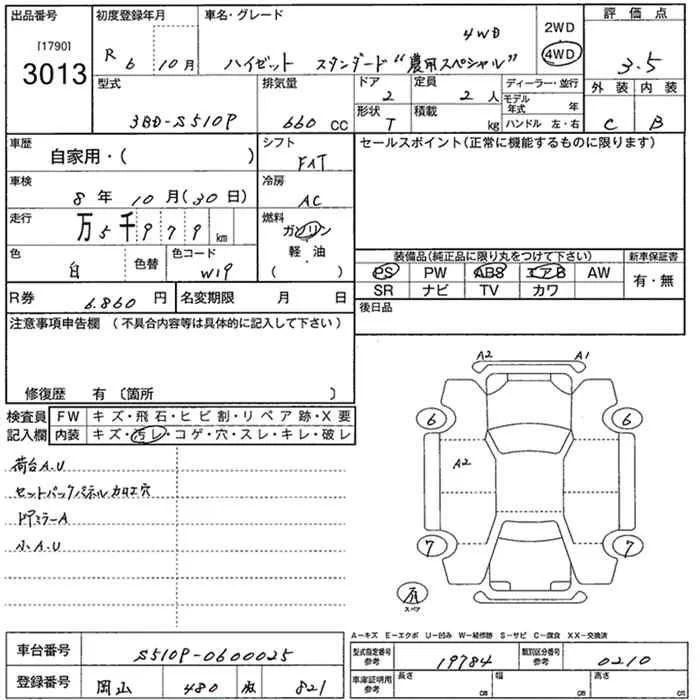 出品番号
[1790]
3013
初度登録年月
R 6 10月
車名・グレード
4WD
ハイゼット スタンダード"農用スペシャル"
2WD
4WD
評価点
3.5
外装 内装
C B
型式
3BD-S510P
排気量
660 CC
ドア
2
定員
2 人
形状
T
積載
kg
ディーラー・並行
モデル年式 年
ハンドル 左・右
車歴
自家用・( )
シフト
FAT
車検
8年 10月(30日)
冷房
AC
走行
万5千979 km
燃料
ガソリン
軽・油
( )
色
白
色替
色コード
W19
R券
6.860 円
名変期限 月 日
セールスポイント(正常に機能するものに限ります)
装備品(純正品に限り丸をつけて下さい)
新車保証書
PS PW ABS エアB AW
SR ナビ TV カワ
有・無
後日品
注意事項申告欄 (不具合内容等は具体的に記入して下さい)
修復歴 有〔箇所 〕
検査員記入欄
FW キズ・飛石・ヒビ割・リペア跡・X要
内装 キズ・汚レ・コゲ・穴・スレ・キレ・破レ
荷台A.U
セットバックパネル加工穴
ドアミラーA
小A.U
A2 A1
6 6
A2
7 7
スペア
A－キズ E－エクボ U－凹み W－補修跡 S－サビ C－腐食 XX－交換済
車台番号
S510P-0600025
登録番号
岡山 480 821
型式指定番号
参考
19784
類別区分番号
参考
0210
車庫証明用
参考
長さ cm
幅 cm
高さ cm